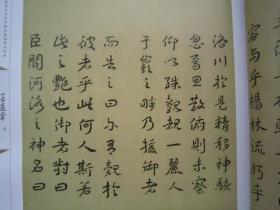 容与乎楊林流眄乎
洛川於是精移神駭
忽焉思散俯則未察
仰以殊觀覩一麗人
于巖之畔乃援御者
而告之曰尔有覿於
彼者乎此何人斯若
此之艷也御者對曰
臣聞河洛之神名曰